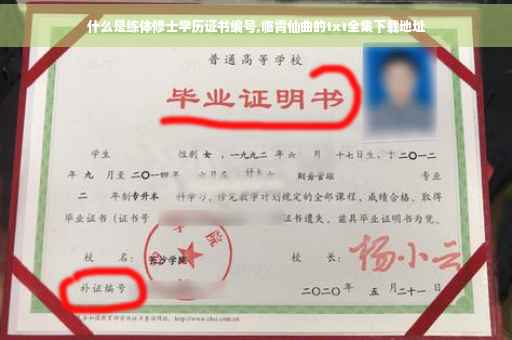 什么是练体修士学历证书编号,临霄仙曲的txt全集下载地址
普通高等学校
毕业证明书
学生 性别 女,一九九二年六 月 十七日生,于二〇一二
年 九 月至二〇一四年 六月在 财务管理 专业
二 年制专升本 科学习,修完教学计划规定的全部课程,成绩合格,取得
毕业证书(证书号 证书遗失,兹具毕业证明书为凭。
校 名: 长沙学院 校 长: 杨小云
补证编号 二〇二〇年 五 月二十一日